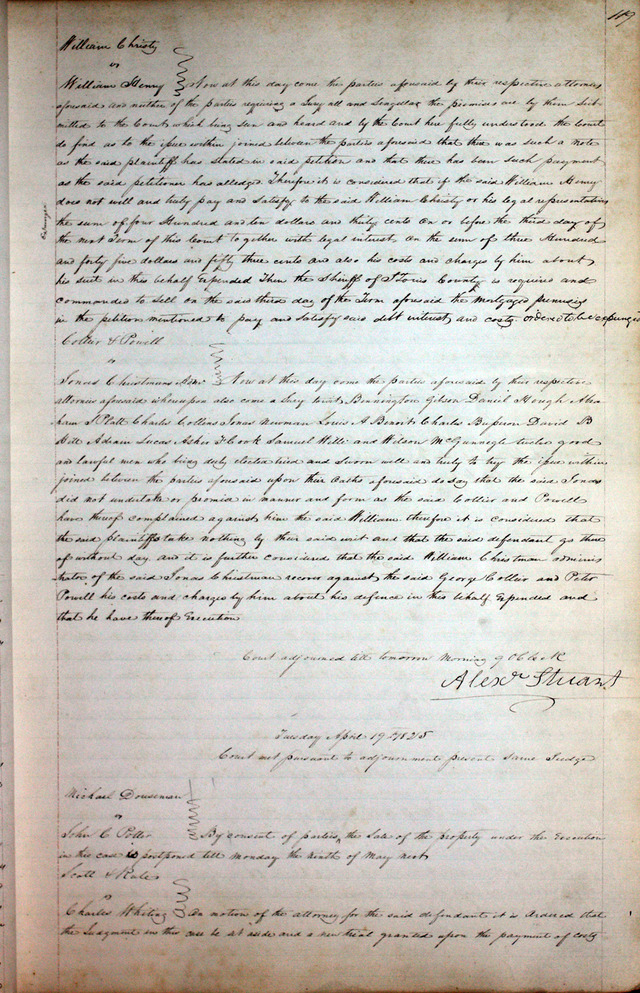 119
William Christy
vs
William Henry Now at this day come the parties aforesaid by their respective attorneys
aforesaid and neither of the parties requiring a Jury all and Singular the premises are by them Sub
mitted to the Court which being seen and heard and by the Court here fully understood the Court
do find as to the issue within joined between the parties aforesaid that there was such a note
as the said plaintiff has stated in said petition and that there has been such payment
as the said petitioner has alledged Therefore it is considered that if the said William Henry
does not will and truly pay and Satisfy to the said William Christy or his legal representatives
the sum of four Hundred and ten dollars and thirty cents on or before the third day of
the next Term of this Court together with legal interest on the sum of three Hundred
and forty five dollars and fifty three cents and also his costs and charges by him about
his suit in this behalf Expended Then the Sheriff of St Louis County is required and
commanded to Sell on the said third day of the Term aforesaid the Mortgaged premises
in the petition mentioned to pay and Satisfy said debt interest and costs ordered to be expunged
Collier & Powell
vs
Jonas Christmans Admr Now at this day come the parties aforesaid by their respective
attornies aforesaid whereupon also come a Jury to wit Bennington Gibson Daniel Hough Abra
ham S Platt Charles Collins Jonas Newman Louis A Benoit Charles Busson David B
Hill Adam Lucas Asher F Cook Samuel Willi and Wilson McGunnegle twelve good
and lawful men who being duly elected tried and Sworn well and truly to try the issue within
joined between the parties aforesaid upon their Oaths aforesaid do say that the said Jonas
did not undertake or promise in manner and form as the said Collier and Powell
have thereof complained against him the said William therefore it is considered that
the said plaintiffs take nothing by their said writ and that the said defendant go there
of without day and it is further considered that the said William Christman adminis
trator of the said Jonas Christman recover against the said George Collier and Peter
Powell his costs and charges by him about his defence in this behalf Expended and
that he have thereof Execution
Court adjourned till tomorrow Morning 9 O Clock
Alexr Stuart
Tuesday April 19th 1825
Court met pursuant to adjournment present Same Judge
Michael Douseman
vs
John C Potter By consent of parties, the Sale of the property under the Execution
in this case is postponed till Monday the ninth of May next
Scott & Rule
vs
Charles Whiting On motion of the attorney for the said defendant it is Ordered that
the Judgment in this case be set aside and a new trial granted upon the payment of costs